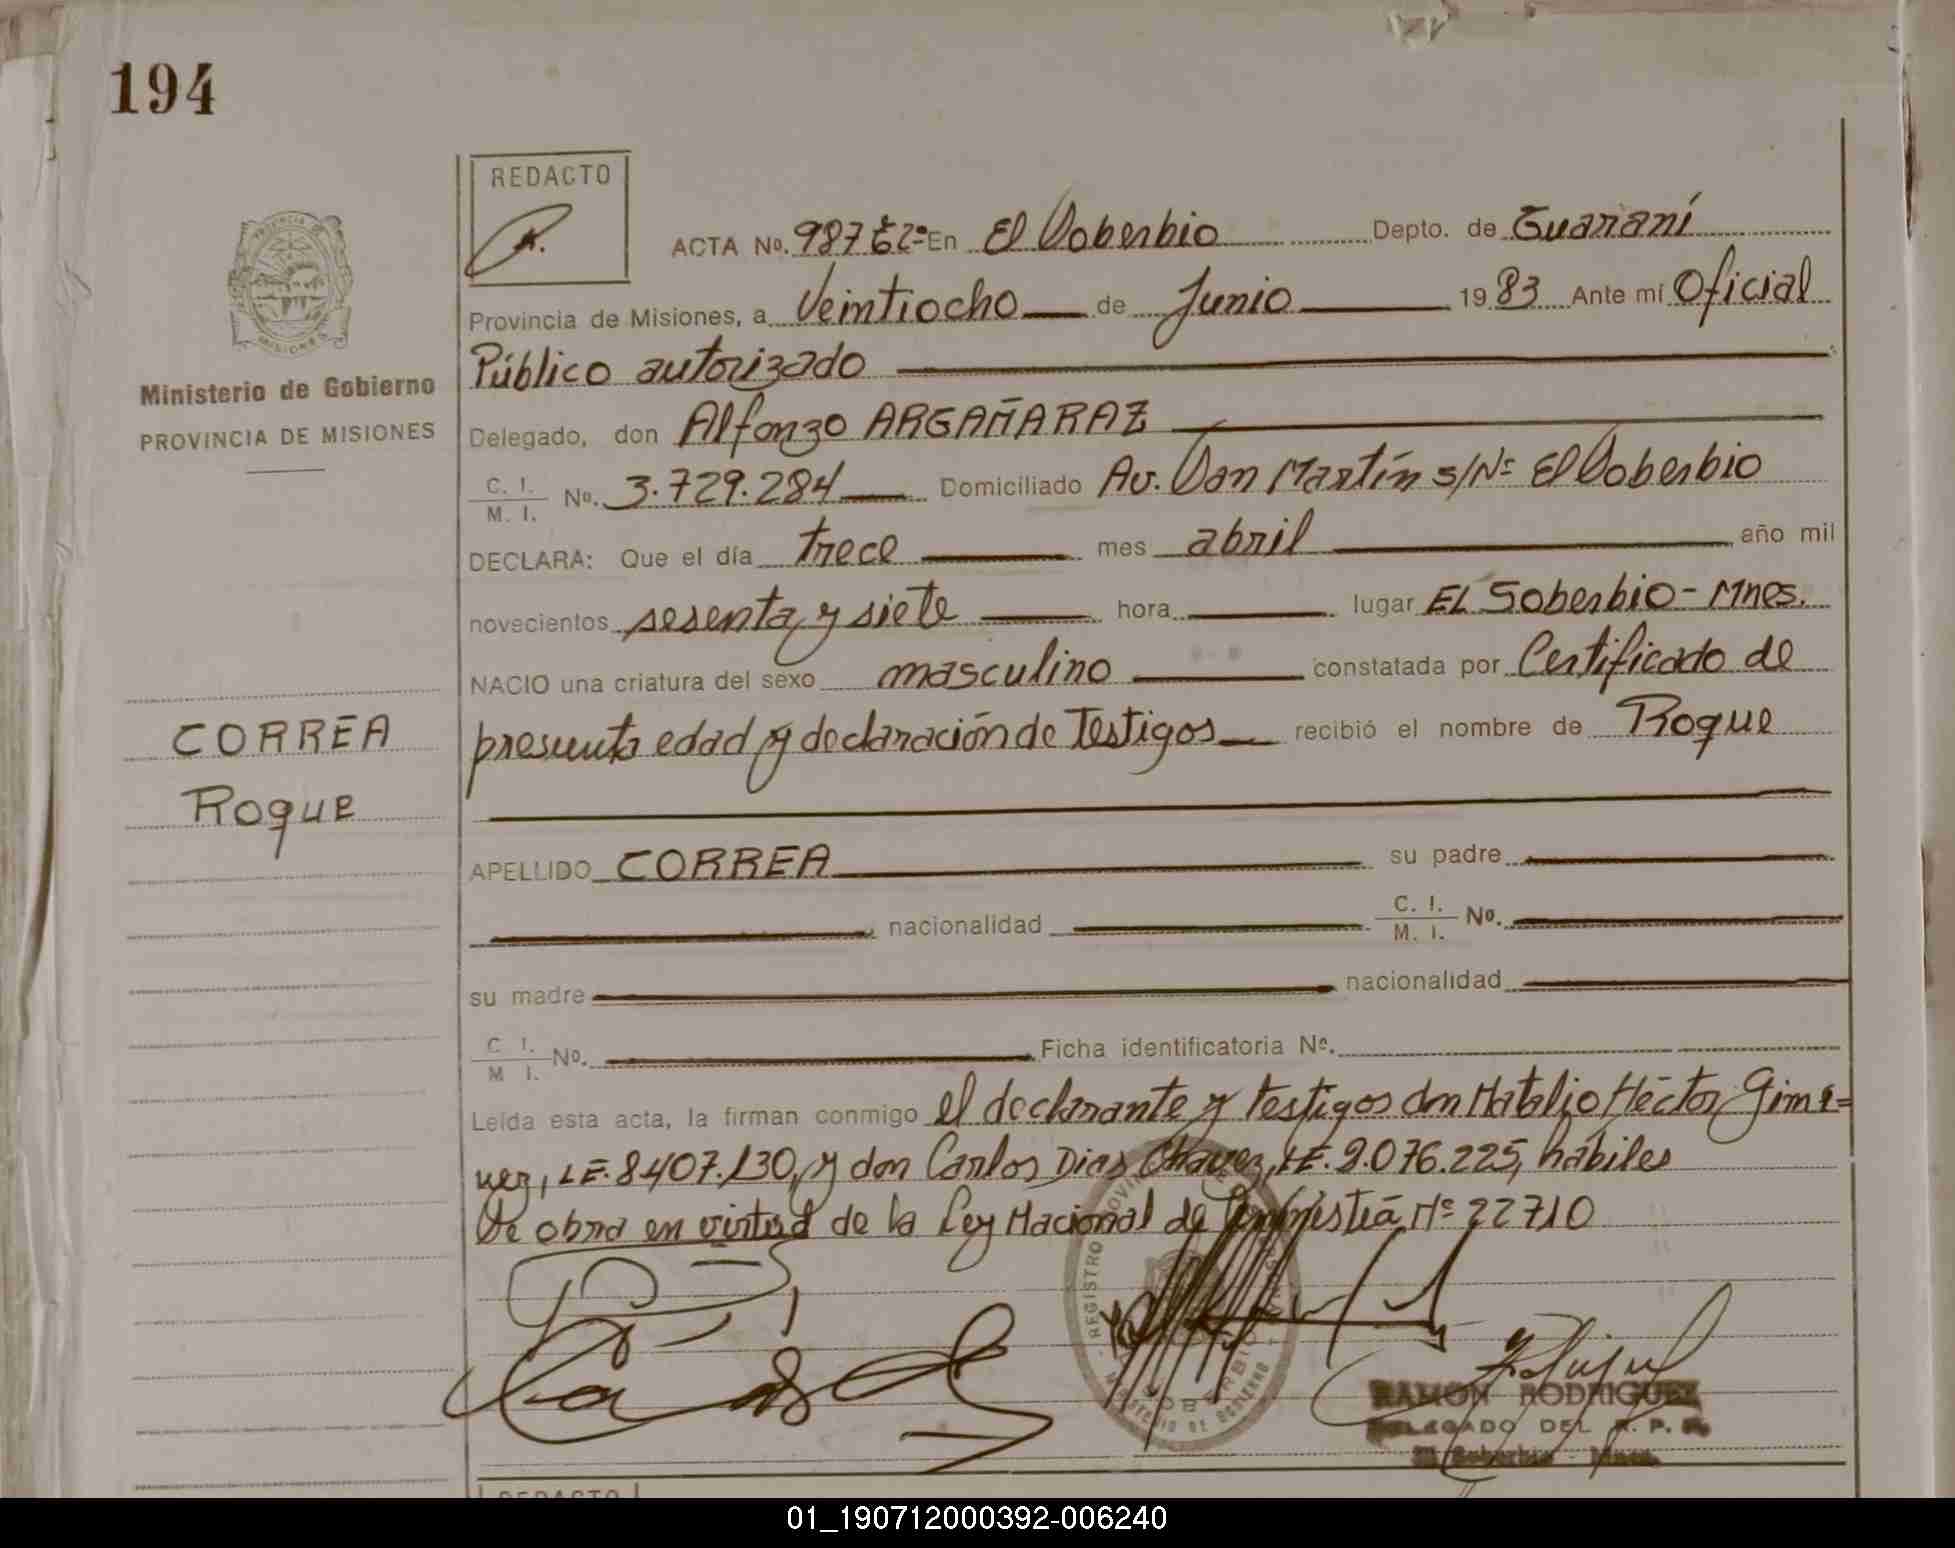 194
REDACTO
PROVINCIA
MISIONES
Ministerio de Gobierno
PROVINCIA DE MISIONES
ACTA No. 987 En El Soberbio Depto. de Guaraní
Provincia de Misiones, a Veintiocho de Junio 1983 Ante mí Oficial
Público autorizado
Delegado, don Alfonzo ARGAÑARAZ
C. I. / M. I. No. 3.729.284 Domiciliado Av. San Martín s/Nº El Soberbio
DECLARA: Que el día trece mes abril año mil
novecientos sesenta y siete hora lugar EL Soberbio - Mnes.
NACIO una criatura del sexo masculino constatada por Certificado de
presunta edad y declaración de Testigos recibió el nombre de Roque
CORREA
Roque
APELLIDO CORREA su padre
nacionalidad C. I. / M. I. No.
su madre nacionalidad
C I. / M I. No. Ficha identificatoria Nº.
Leída esta acta, la firman conmigo el declarante y testigos don Natalio Héctor Gimé=
nez, LE. 8407.130, y don Carlos Dias Chavez, LE. 9.076.225, hábiles
Se obra en virtud de la Ley Nacional de Amnistía Nº 22710
REGISTRO PROVIN
MINISTERIO DE GOBIERNO
RAMON RODRIGUEZ
DELEGADO DEL R. P. P.
El Soberbio - Mnes.
REDACTO
01_190712000392-006240